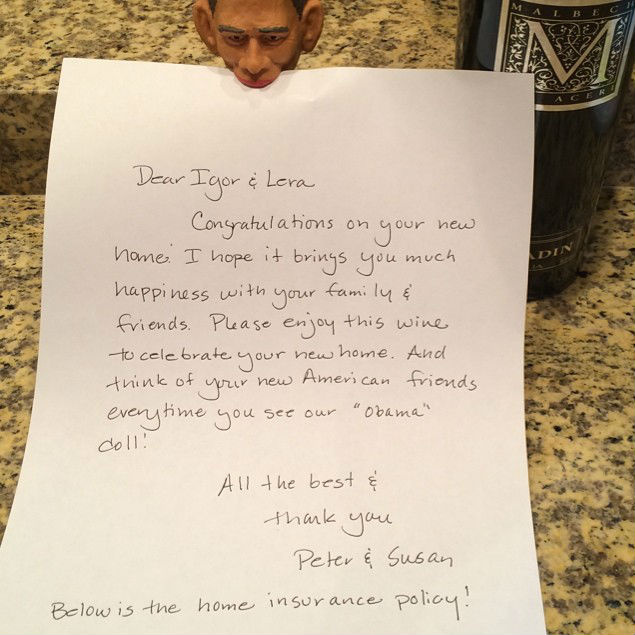 MALBEC
M
Dear Igor & Lera
Congratulations on your new
home! I hope it brings you much
happiness with your family &
friends. Please enjoy this wine
to celebrate your new home. And
think of your new American friends
everytime you see our "Obama"
doll!
All the best &
thank you
Peter & Susan
Below is the home insurance policy!